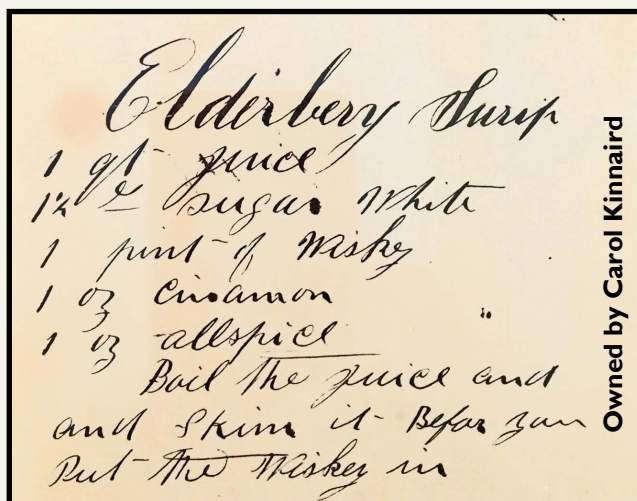 Elderbery Surip
1 qt juice
1½ lb sugar White
1 pint of Wiskey
1 oz cinamon
1 oz allspice
Boil the juice and
and skim it Befor you
Put the Wiskey in
Owned by Carol Kinnaird